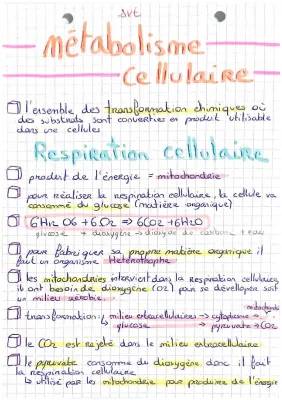 SVT
métabolisme
cellulaire
l'ensemble des transformation chimiques où
des substrats sont converties en produit utilisable
dans une cellules
Respiration cellulaire
produit de l'énergie = mitochondrie
pour réaliser la respiration cellulaire, la cellule va
consommé du glucose (matière organique)
6H12 O6 + 6O2 ⇒ 6CO2 + 6H2O
glucose + dioxygène → dioxyde de carbone + eau
pour fabriquer sa propre matière organique il
faut un organisme Hétérotrophe
les mitochondries intervient dans la Respiration cellulaire,
ils ont besoin de dioxygène (O2) pour se développer soit
un milieu aérobie.
mitochondrie
transformation : milieu extracellulaires → cytoplasme →
glucose → pyruvate → CO2
le CO2 est rejeté dans le milieu extracellulaire
le pyruvate consomme du dioxygène donc il fait
la respiration cellulaire
↳ utilisé par les mitochondrie pour produire de l'énergie